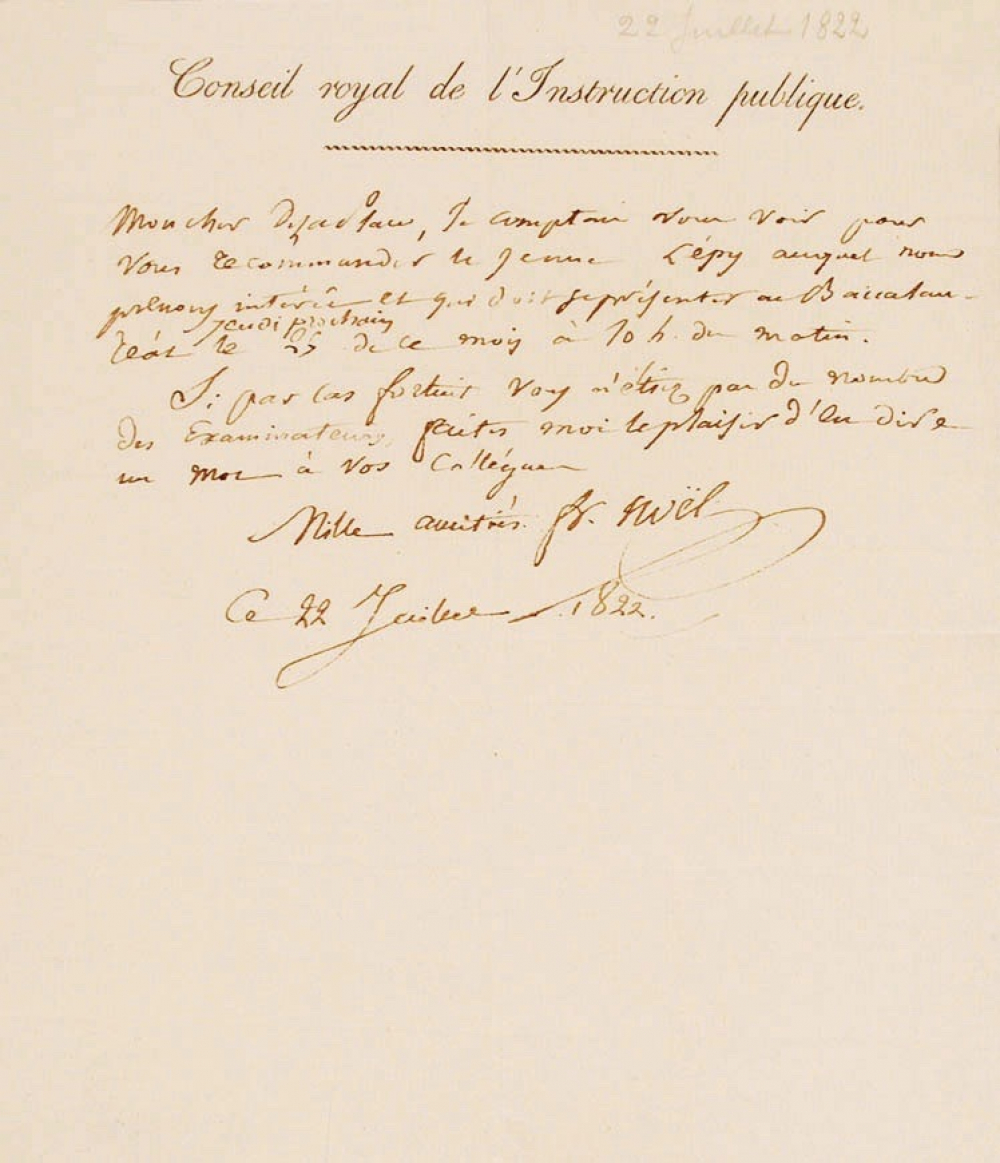 22 Juillet 1822
Conseil royal de l'Instruction publique.
Mon cher, Je comptais vous voir pour
vous recommander le jeune Lépy auquel nous
prenons intérêt et qui doit se présenter au Baccalau-
jeudi prochain
réat le 25 de ce mois à 10 h. du matin.
Si par cas fortuit vous n'étiez pas du nombre
des Examinateurs, faites moi le plaisir d'en dire
un mot à vos Collègues
Mille amitiés. fr. Noël
Ce 22 Juillet 1822.